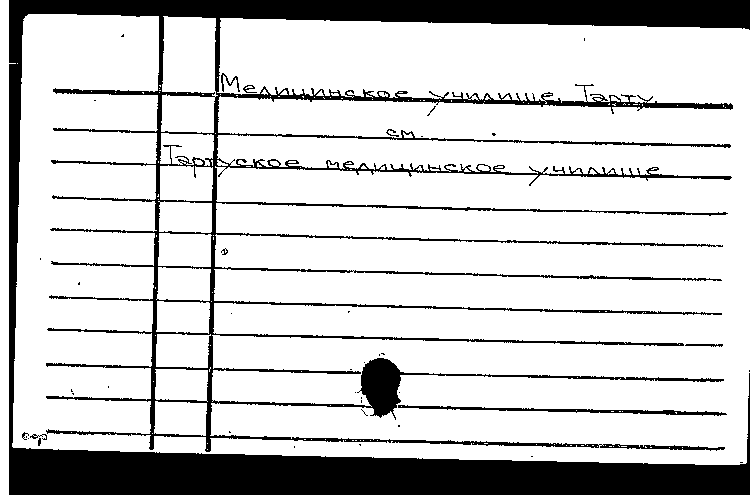 Медицинское училище, Тарту,
см.
Тартуское медицинское училище